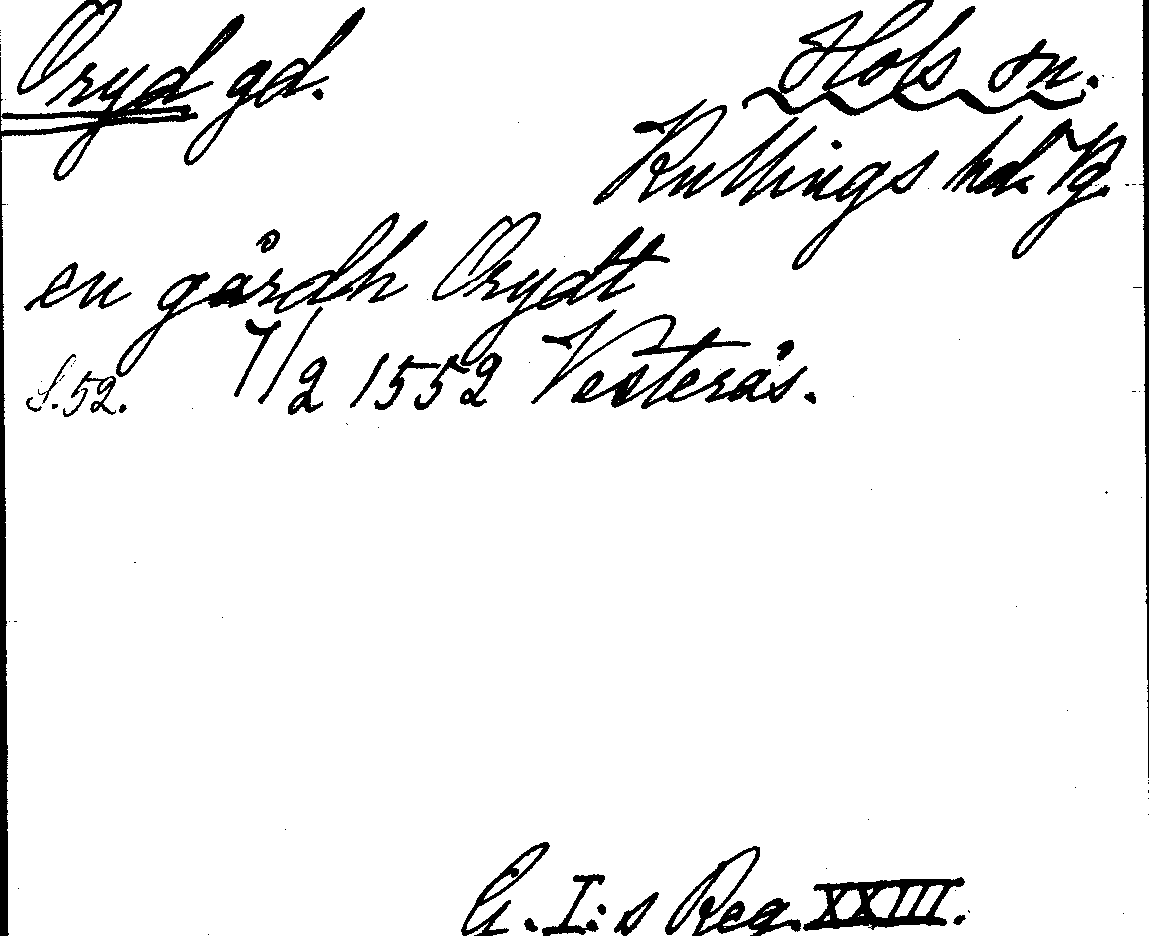 Oryd gd.
Hols sn.
Kullings hd. Vg.
en gårdh Orydt
S. 52. 7/2 1552 Vesterås.
G. I:s Reg. XXIII.